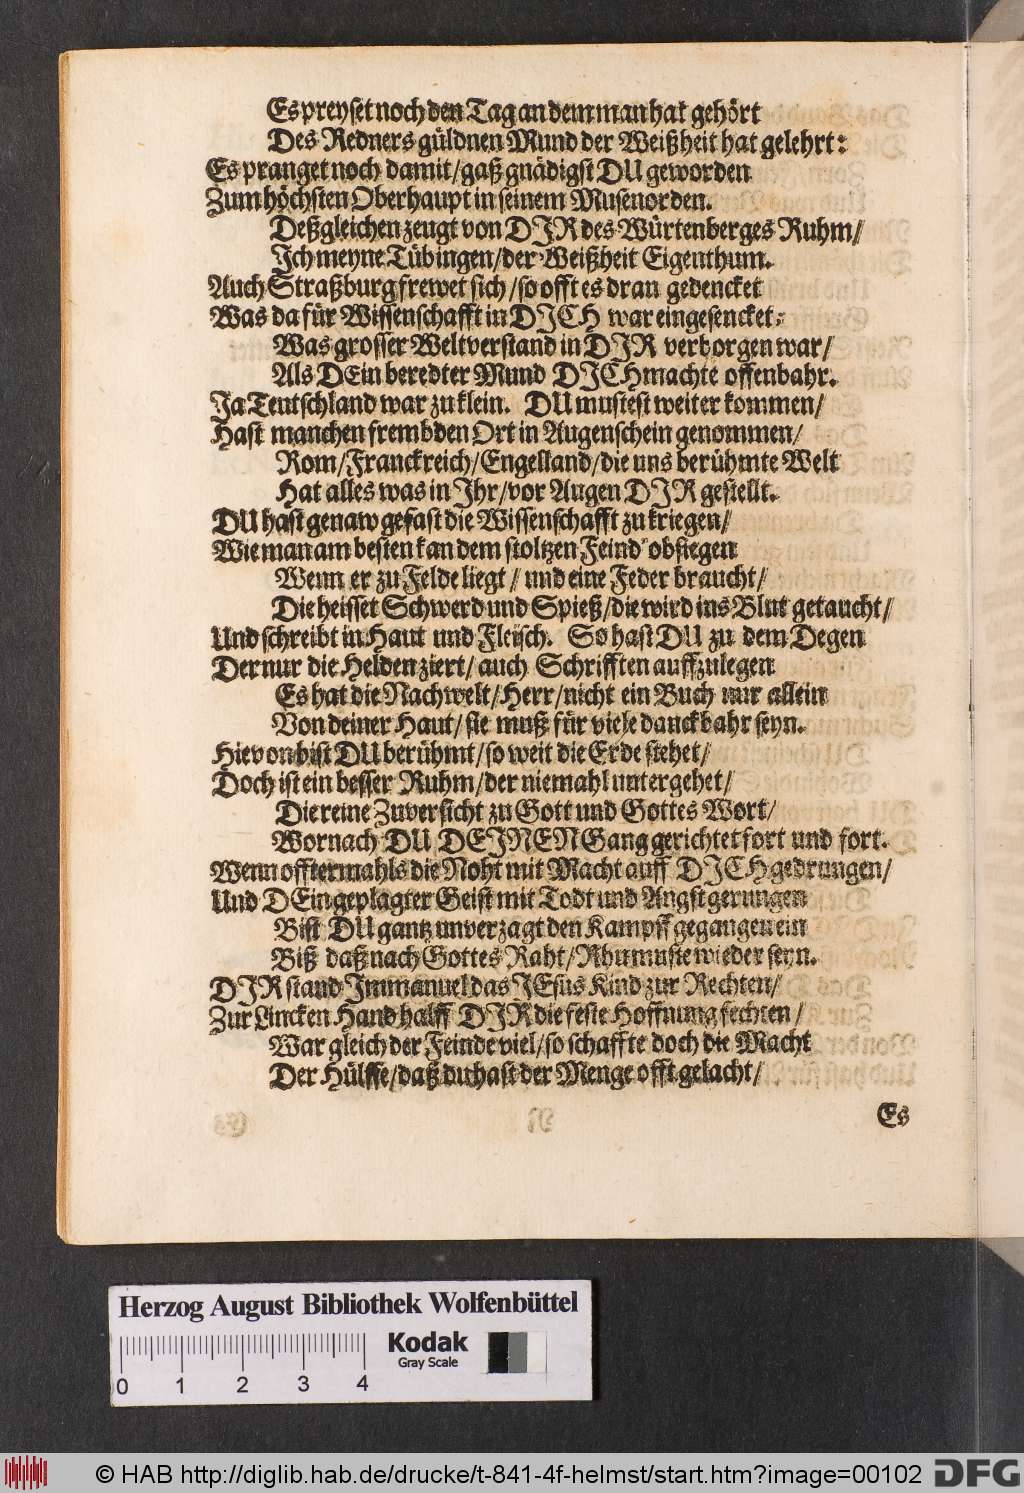 Es preyset noch den Tag an dem man hat gehört
Des Redners güldnen Mund der Weißheit hat gelehrt:
Es pranget noch damit/ gaß gnädigst DU geworden
Zum höchsten Oberhaupt in seinem Musenorden.
Deßgleichen zeugt von DJR des Würtenberges Ruhm/
Jch meyne Tübingen/ der Weißheit Eigenthum.
Auch Straßburg frewet sich/ so offt es dran gedencket
Was da für Wissenschafft in DJCH war eingesencket:
Was grosser Weltverstand in DJR verborgen war/
Als DEin beredter Mund DJCH machte offenbahr.
Ja Teutschland war zu klein. DU mustest weiter kommen/
Hast manchen frembden Ort in Augenschein genommen/
Rom/ Franckreich/ Engelland/ die uns berühmte Welt
Hat alles was in Jhr/ vor Augen DJR gestellt.
DU hast genaw gefast die Wissenschafft zu kriegen/
Wie man am besten kan dem stoltzen Feind obsiegen
Wenn er zu Felde liegt/ und eine Feder braucht/
Die heisset Schwerd und Spieß/ die wird ins Blut getaucht/
Und schreibt in Haut und Fleisch. So hast DU zu dem Degen
Der nur die Helden ziert/ auch Schrifften auffzulegen
Es hat die Nachwelt/ Herr/ nicht ein Buch nur allein
Von deiner Haut/ sie muß für viele danckbahr seyn.
Hievon bist DU berühmt/ so weit die Erde stehet/
Doch ist ein besser Ruhm/ der niemahl untergehet/
Die reine Zuversicht zu Gott und Gottes Wort/
Wornach DU DEJNEN Gang gerichtet fort und fort.
Wenn offtermahls die Noht mit Macht auff DJCH gedrungen/
Und DEin geplagter Geist mit Todt und Angst gerungen
Bist DU gantz unverzagt den Kampff gegangen ein
Biß daß nach Gottes Raht/ Rhu muste wieder seyn.
DJR stand Jmmanuel das JEsus Kind zur Rechten/
Zur Lincken Hand halff DJR die feste Hoffnung fechten/
War gleich der Feinde viel/ so schaffte doch die Macht
Der Hülffe/ daß du hast der Menge offt gelacht/
Es
Herzog August Bibliothek Wolfenbüttel
Kodak
Gray Scale
0 1 2 3 4
© HAB http://diglib.hab.de/drucke/t-841-4f-helmst/start.htm?image=00102
DFG